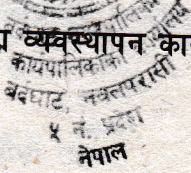 व्यवस्थापन का
कार्यपालिकाको
बर्दघाट, नवलपरासी
५ नं. प्रदेश
नेपाल